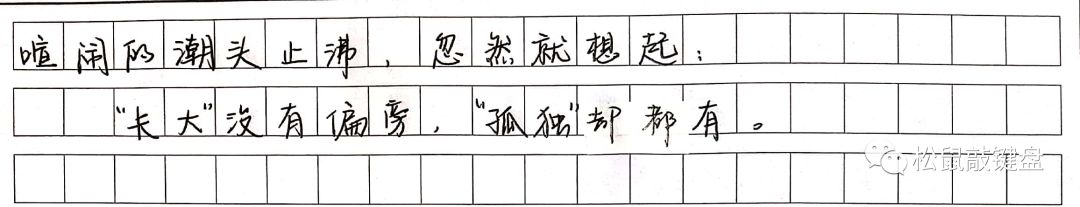 喧闹的潮头止沸，忽然就想起：
“长大”没有偏旁，“孤独”却都有。
松鼠敲键盘